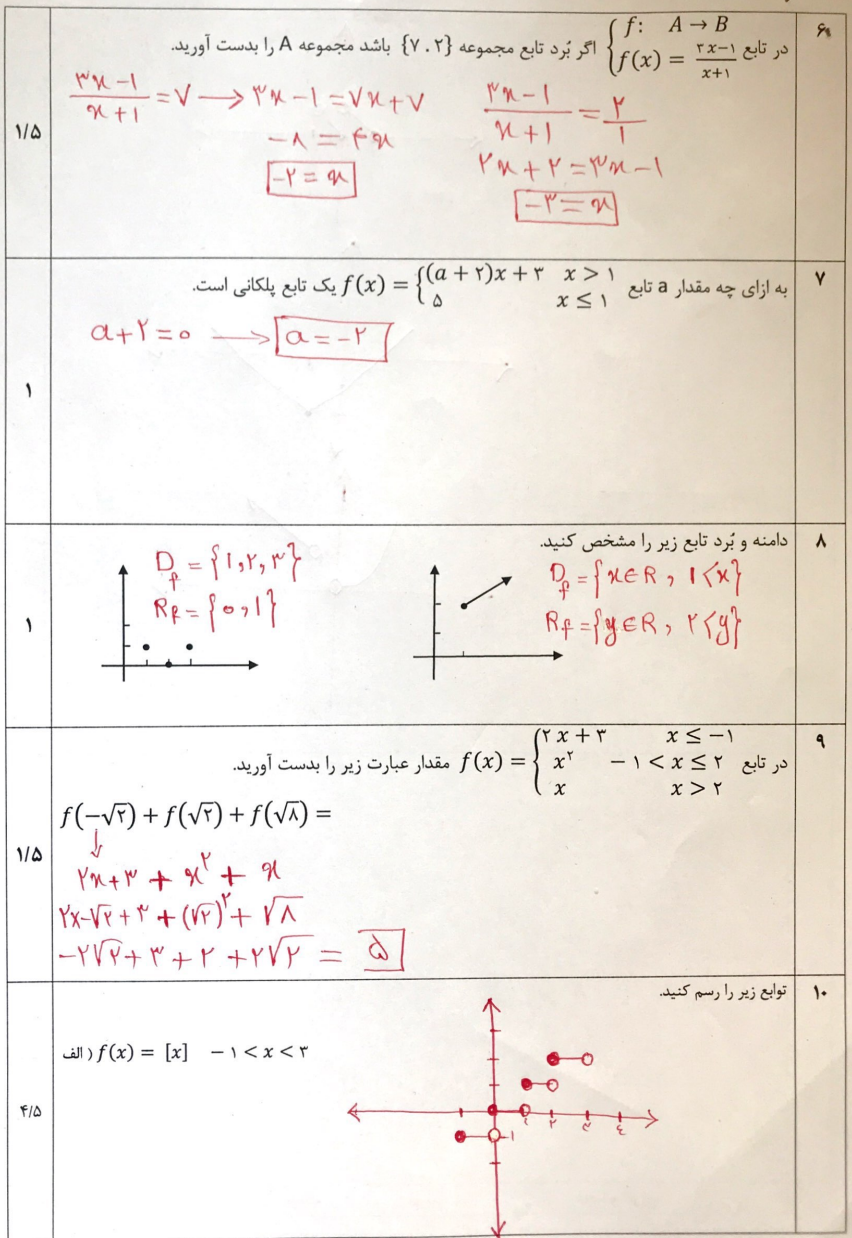 ۶
در تابع { f: A → B
f(x) = ۳x−۱/x+۱ اگر بُرد تابع مجموعه {۷ . ۲} باشد مجموعه A را بدست آورید.
۳x−۱/x+۱ = ۷ → ۳x−۱ = ۷x+۷
−۸ = ۴x
−۲ = x
۳x−۱/x+۱ = ۲/۱
۲x+۲ = ۳x−۱
−۳ = x
۱/۵
۷
به ازای چه مقدار a تابع f(x) = { (a + ۲)x + ۳ x > ۱
۵ x ≤ ۱ یک تابع پلکانی است.
a+۲ = ۰ → a = −۲
۱
۸
دامنه و بُرد تابع زیر را مشخص کنید.
D_f = {x∈R , ۱<x}
R_f = {y∈R , ۲<y}
D_f = {۱,۲,۳}
R_f = {۰,۱}
۱
۹
در تابع f(x) = { ۲x + ۳ x ≤ −۱
x^۲ − ۱ < x ≤ ۲
x x > ۲ مقدار عبارت زیر را بدست آورید.
f(−√۲) + f(√۲) + f(√۸) =
↓
۲x+۳ + x^۲ + x
۲×−√۲ + ۳ + (√۲)^۲ + √۸
−۲√۲ + ۳ + ۲ + ۲√۲ = ۵
۱/۵
۱۰
توابع زیر را رسم کنید.
الف ) f(x) = [x] − ۱ < x < ۳
۱ ۲ ۳ ٤
−۱
۴/۵